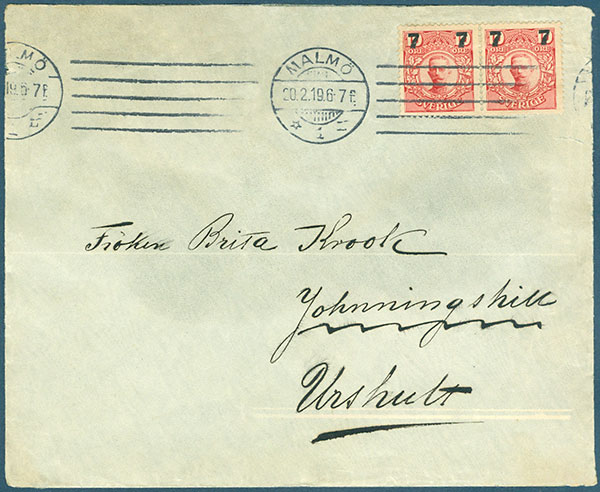 MALMÖ
19.6-7 F.
MALMÖ
20.2.19.6-7 F.
1
7 7
ÖRE ÖRE
SVERIGE
7 7
ÖRE ÖRE
SVERIGE
Fröken Brita Krook
Johnningshill
Urshult